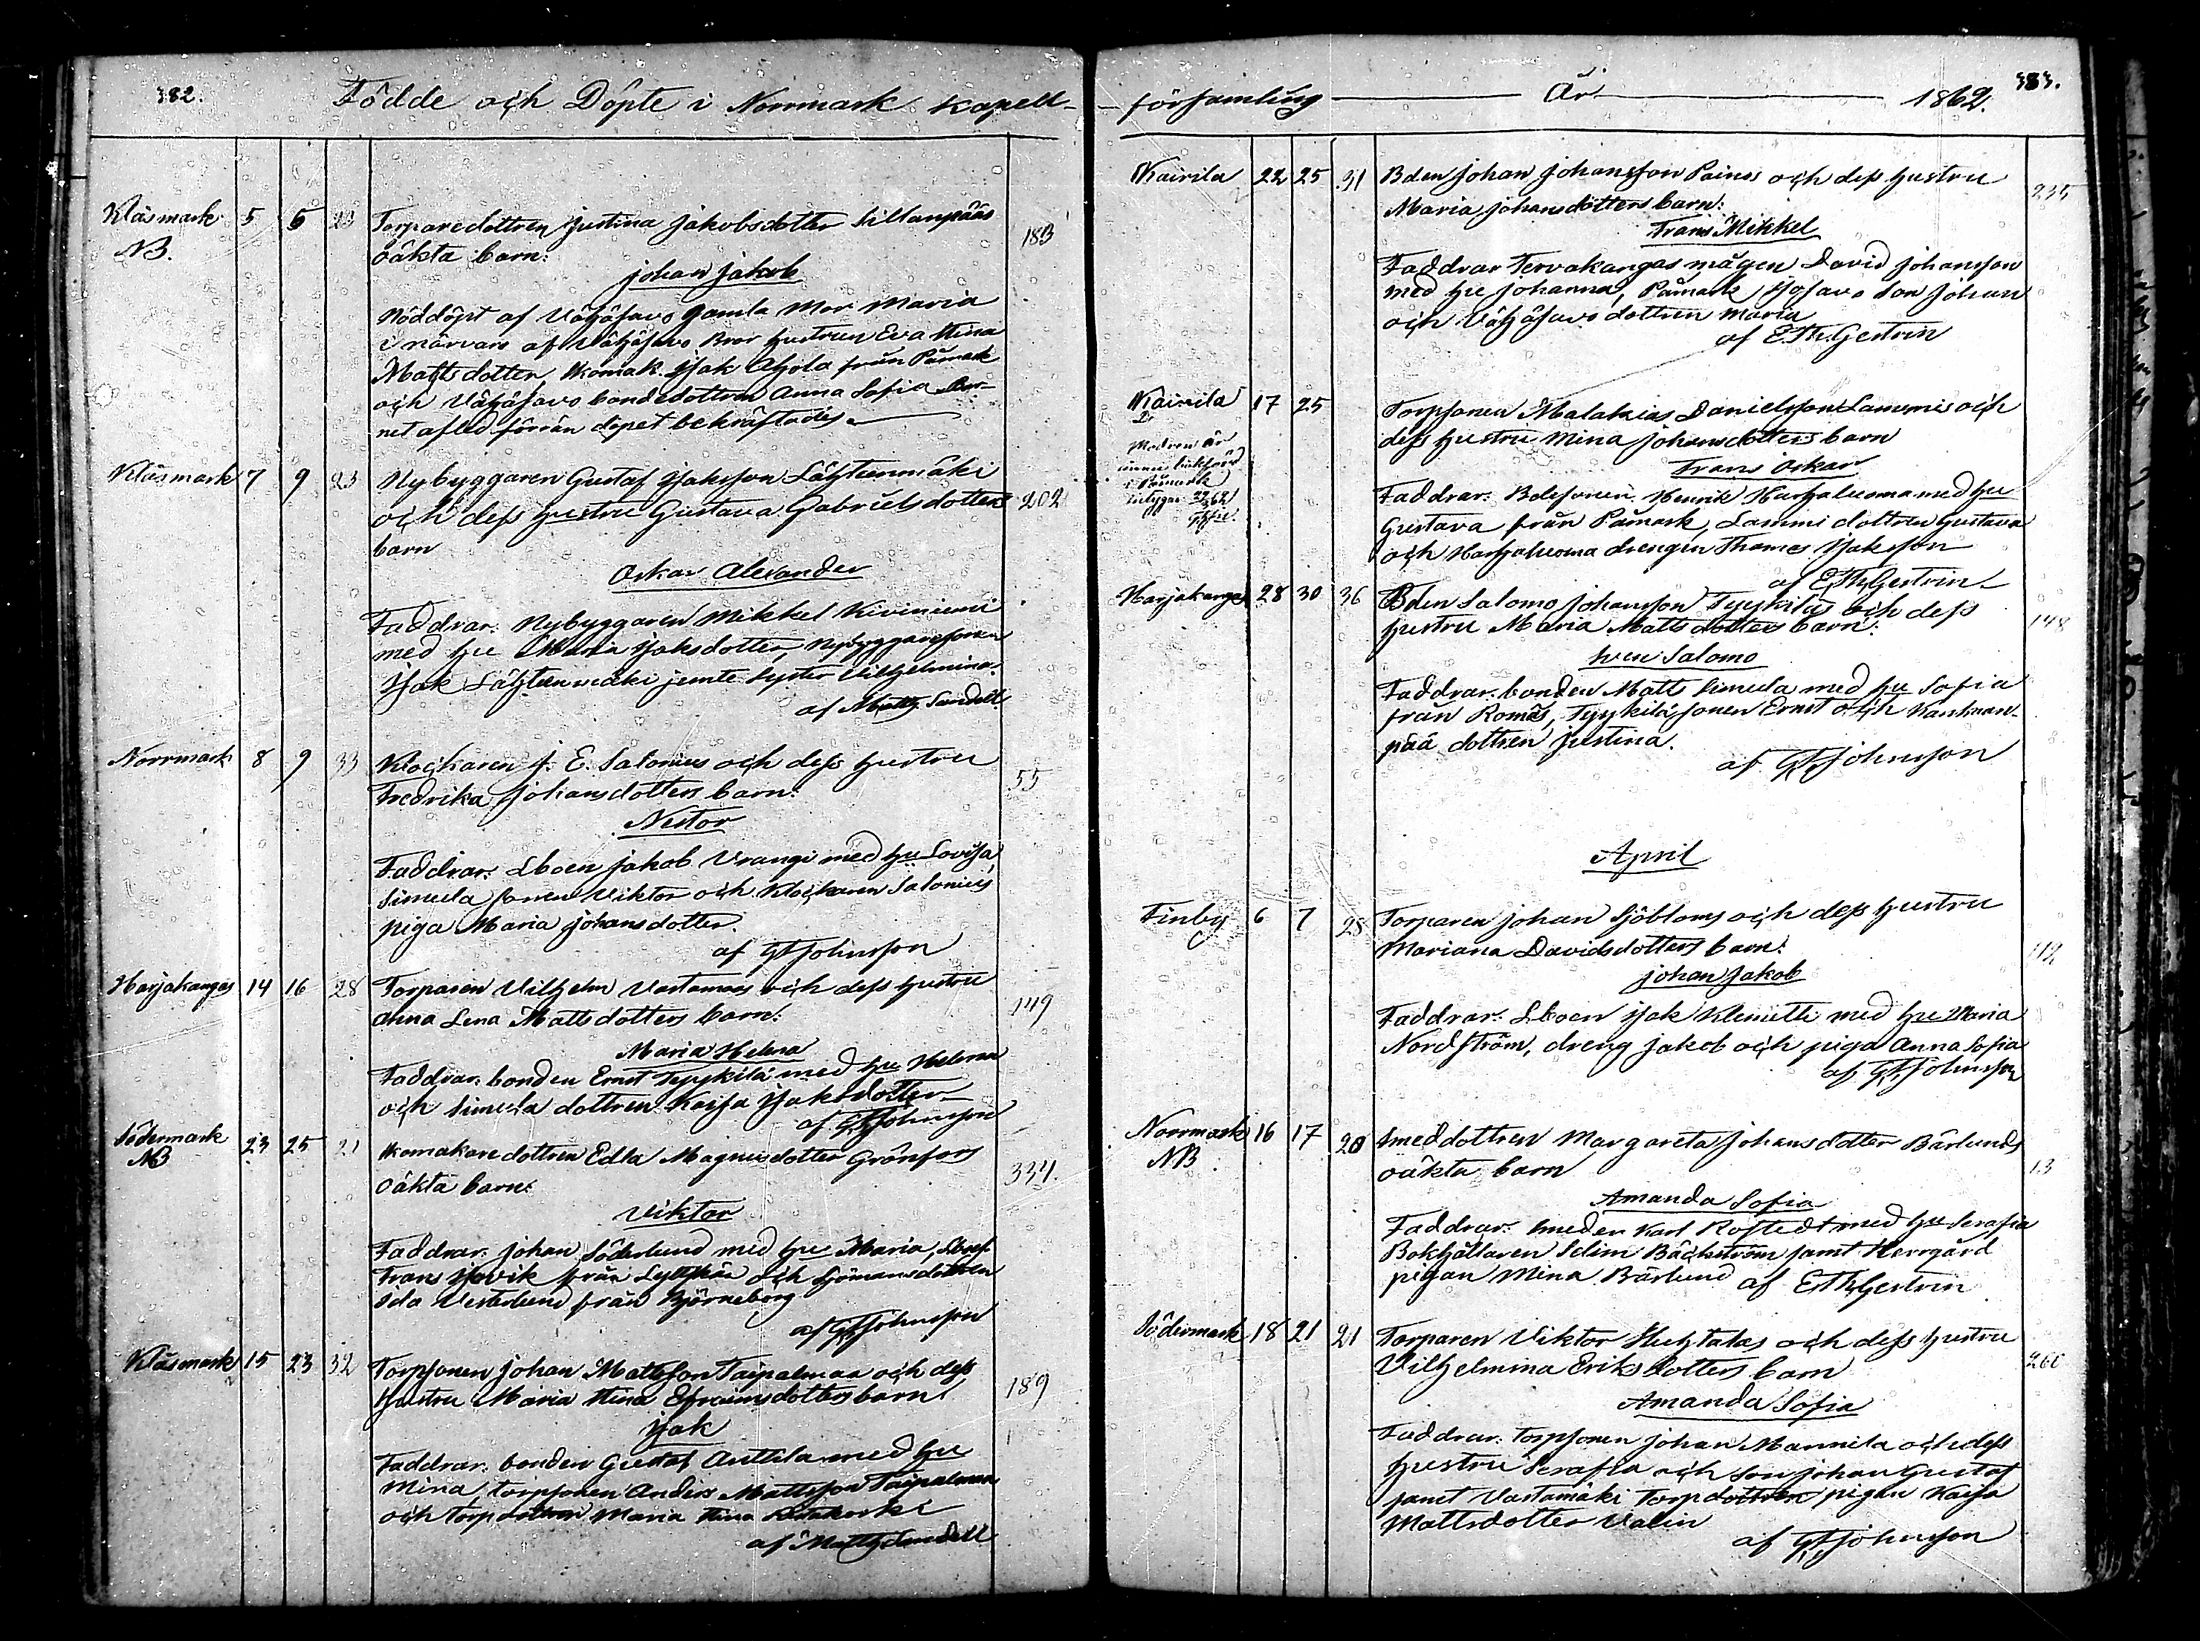 382.
Födde och Döpte i Norrmark kapell-
Klåsmark 5 5 23 Torparedottren Justina Jakobsdotter Sillanpääs 183
NB. oäkta barn:
Johan Jakob
Nöddöpt af Vähäsavo gamla Mor Maria
i närvaro af Vähäsavo Bror hustrun Eva Stina
Mattsdotter, skomak. Isak Ahola från Påmark
och Vähäsavo bondedottren Anna Sofia Bar-
net afled förrän dopet bekräftades.
Klåsmark 7 9 23 Nybyggaren Gustaf Isaksson Lähteenmäki
och dess hustru Gustava Gabrielsdotters 202
barn
Oskar Alexander
Faddrar: Nybyggaren Mikkel Kiviniemi
med hu Maria Isaksdotter, Nybyggaresonen
Isak Lähteenmäki jemte syster Vilhelmina.
af Matth. Sandell
Norrmark 8 9 33 Klockaren J. E. Salonius och dess hustru
Fredrika Johansdotters barn: 55
Nestor
Faddrar: Lboen Jakob Vrangi med hu Lovisa,
Simula sonen Viktor och klockaren Salonius
piga Maria Johansdotter.
af GF Johnsson
Harjakangas 14 16 28 Torparen Vilhelm Vastamaas och dess hustru
Anna Lena Mattsdotters barn: 149
Maria Helena
Faddrar: bonden Ernst Tyykilä med hu Helena
och Simula dottren Kaisa Isaksdotter
af GF Johnsson
Södermark 23 25 21 Skomakaredottren Edla Magnusdotter Grönfors
NB oäkta barn: 334.
Viktor
Faddrar: Johan Söderlund med hu Maria,
Frans från och Sjömansdottren
Ida Vesterlund från Björneborg
af GF Johnsson
Klåsmark 15 23 32 Torpsonen Johan Mattsson Taipalmaa och dess
hustru Maria Stina Efraimsdotters barn 189
Isak
Faddrar: bonden Gustaf Anttila med hu
Mina, torpsonen Anders Mattsson Taipalmaa
och torpdottren Maria Stina
af Matth Sandell
383.
-församling År 1862.
Kairila 22 25 31 Bden Johan Johansson Painos och dess hustru 235
Maria Johansdotters barn:
Frans Mikkel
Faddrar Tervakangas mågen David Johansson
med hu Johanna, Påmark, son Johan
och Vähäsavo dottren Maria
af E.Th. Gestrin
Kairila 17 25 Torpsonen Malakias Danielsson Lammis och
2. dess hustru Mina Johansdotters barn
Modren är
i Påmark
Frans Oskar
Faddrar: Bdesonen Henrik Harhaluoma med hu
Gustava från Påmark, Lammi dottren Gustava
och Harhaluoma drengen Thomas Isaksson
af E.Th. Gestrin
Harjakangas 28 30 36 Bden Salomo Johansson Tyykiläs och dess
hustru Maria Mattsdotters barn: 148
Iven Salomo
Faddrar: bonden Matts Simula med hu Sofia
från Romäs, Tyykilä sonen Ernst och Kankaan-
pää dottren Justina.
af GF Johnsson
April
Finby 6 7 28 Torparen Johan Sjöbloms och dess hustru
Mariana Davidsdotters barn: 112
Johan Jakob
Faddrar: Lboen Isak Klemitti med hu Maria
Nordström, dreng Jakob och piga Anna Sofia
af GF Johnsson
Norrmark 16 17 20 Smeddottren Margareta Johansdotter Bärlunds
NB oäkta barn 13
Amanda Sofia
Faddrar: smeden Karl Rostedt med hu Serafia
Bokhållaren Selim Bäckström samt Herrgård
pigan Mina Bärlund af E.Th. Gestrin
Södermark 18 21 21 Torparen Viktor Huhtalas och dess hustru
Vilhelmina Eriksdotters barn 260
Amanda Sofia
Faddrar: torpsonen Johan Mannila och dess
hustru Serafia och son Johan Gustaf
samt Vastamäki torpdottren pigan Kajsa
Mattsdotter Valin
af GF Johnsson